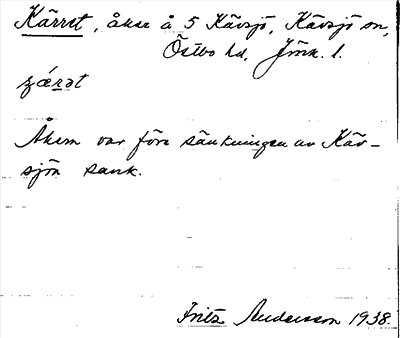 Kärret, åker å 5 Kävsjö, Kävsjö sn,
Östbo hd, Jönk. l.
çǽrət
Åkern var före sänkningen av Käv-
sjön sank.
Fritz Andersson 1938.